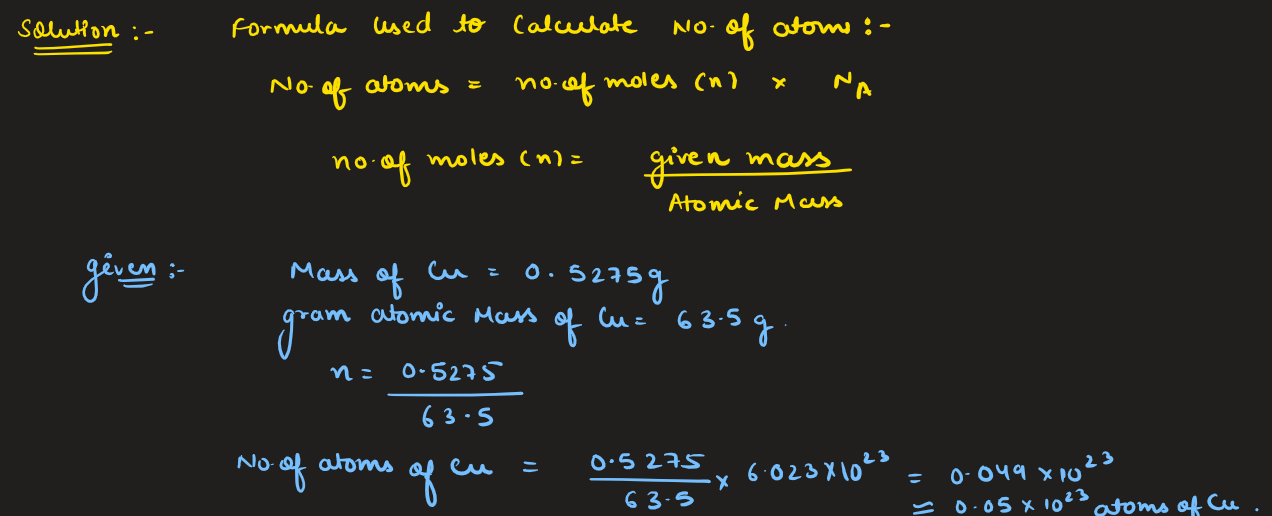 Solution :- Formula used to Calculate No. of atoms :-
No. of atoms = no. of moles (n) × NA
no. of moles (n) = given mass
Atomic Mass
given :- Mass of Cu = 0.5275g
gram atomic Mass of Cu = 63.5 g.
n = 0.5275
63.5
No. of atoms of Cu = 0.5275 / 63.5 × 6.023 × 10²³ = 0.049 × 10²³
≈ 0.05 × 10²³ atoms of Cu.